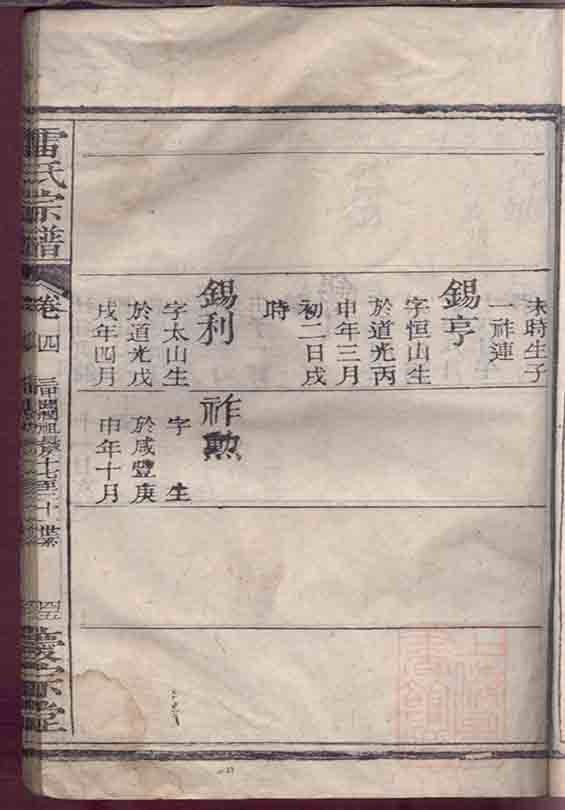 未時生子
一祚連
錫亨
字恒山生
於道光丙
申年三月
初二日戌
時
錫利
字太山生
於道光戊
戌年四月
祚勲
字 生
於咸豐庚
申年十月
雷氏宗譜
卷四
十七至二十世
四五